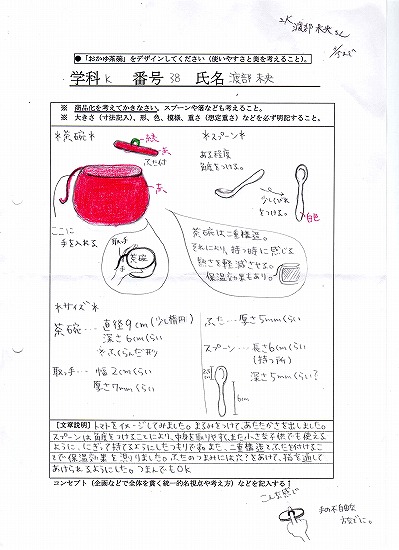 2K 渡部 未央さん
●「おかゆ茶碗」をデザインしてください（使いやすさと美を考えること）。
学科 K 番号 38 氏名 渡部 未央
※ 商品化を考えてかきなさい。スプーンや箸なども考えること。
※ 大きさ（寸法記入）、形、色、模様、重さ（想定重さ）などを必ず明記すること。
*茶碗*
緑
赤
ふた付
赤
ここに
手を入れる
取手
手
茶碗
*スプーン*
ある程度
角度をつける。
少しくびれ
をつける。
白色
茶碗は二重構造。
それにより、持つ時に感じる
熱さを軽減させる。
保温効果もあり。
*サイズ*
茶碗… 直径9cm(少し楕円)
深さ6cmくらい
*ふくらんだ形
取手… 幅2cmくらい
厚さ7mmくらい
ふた… 厚さ5mmくらい
スプーン… 長さ6cmくらい
(持つ所)
深さ5mmくらい?
6cm
【文章説明】トマトをイメージしてみました。まるみをつけて、あたたかさを出しました。
スプーンは角度をつけることにより、中身を取りやすく、また小さな子供でも使える
ように、にぎって持てるようにしたつもりです。また、二重構造とふたを付けるこ
とで保温効果を測りました。ふたのつまみには穴?をあけて、指を通して
あけられるようにした。つまんでもOK
コンセプト（企画などで全体を貫く統一的名視点や考え方）などを記入する！
こんな感じ
手の不自由な
方などに。